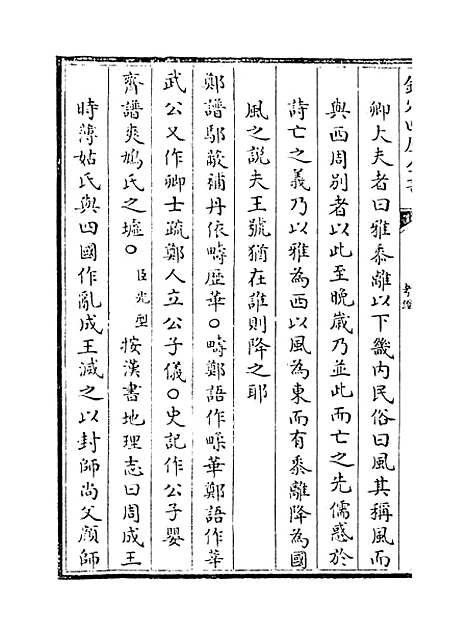 欽定四庫全書
考證
卿大夫者曰雅黍離以下畿内民俗曰風其稱風而
與西周别者以此至晚嵗乃並此而亡之先儒惑於
詩亡之義乃以雅為西以風為東而有黍離降為國
風之説夫王號猶在誰則降之耶
鄭譜鄔蔽補丹依疇歴華○疇鄭語作𪽈華鄭語作莘
武公又作卿士疏鄭人立公子儀○史記作公子嬰
齊譜爽鳩氏之墟○臣光型按漢書地理志曰周成王
時薄姑氏與四國作亂成王滅之以封師尚父顔師